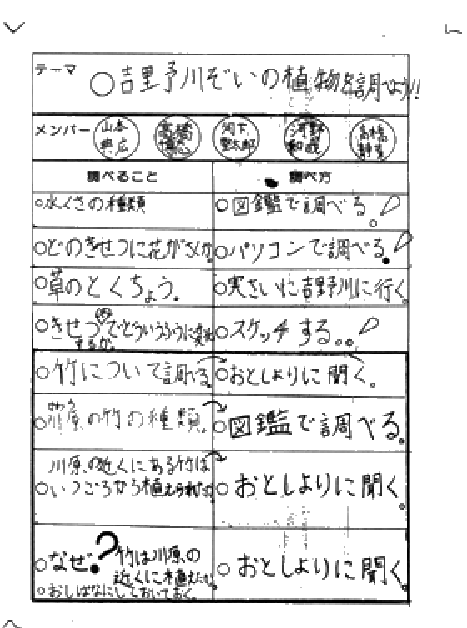 テーマ
○吉野川ぞいの植物を調べよう!!
メンバー
調べること
調べ方
○水くさの種類
○図鑑で調べる。
○どのきせつに花がさくか
○パソコンで調べる。
○草のとくちょう。
○実さいに吉野川に行く。
○きせつでどういうふうに変化
するか。
○スケッチする。
○竹について調べる
○おとしよりに聞く。
の竹の種類。
○図鑑で調べる。
川原の近くにある竹は
○いつごろから植えられた
○おとしよりに聞く。
○なぜ?竹は川原の
近くに植えた
○おしばなにしておいておく。
○おとしよりに聞く。